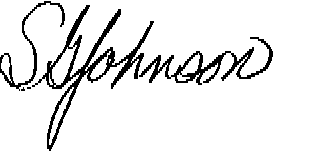 S G Johnson